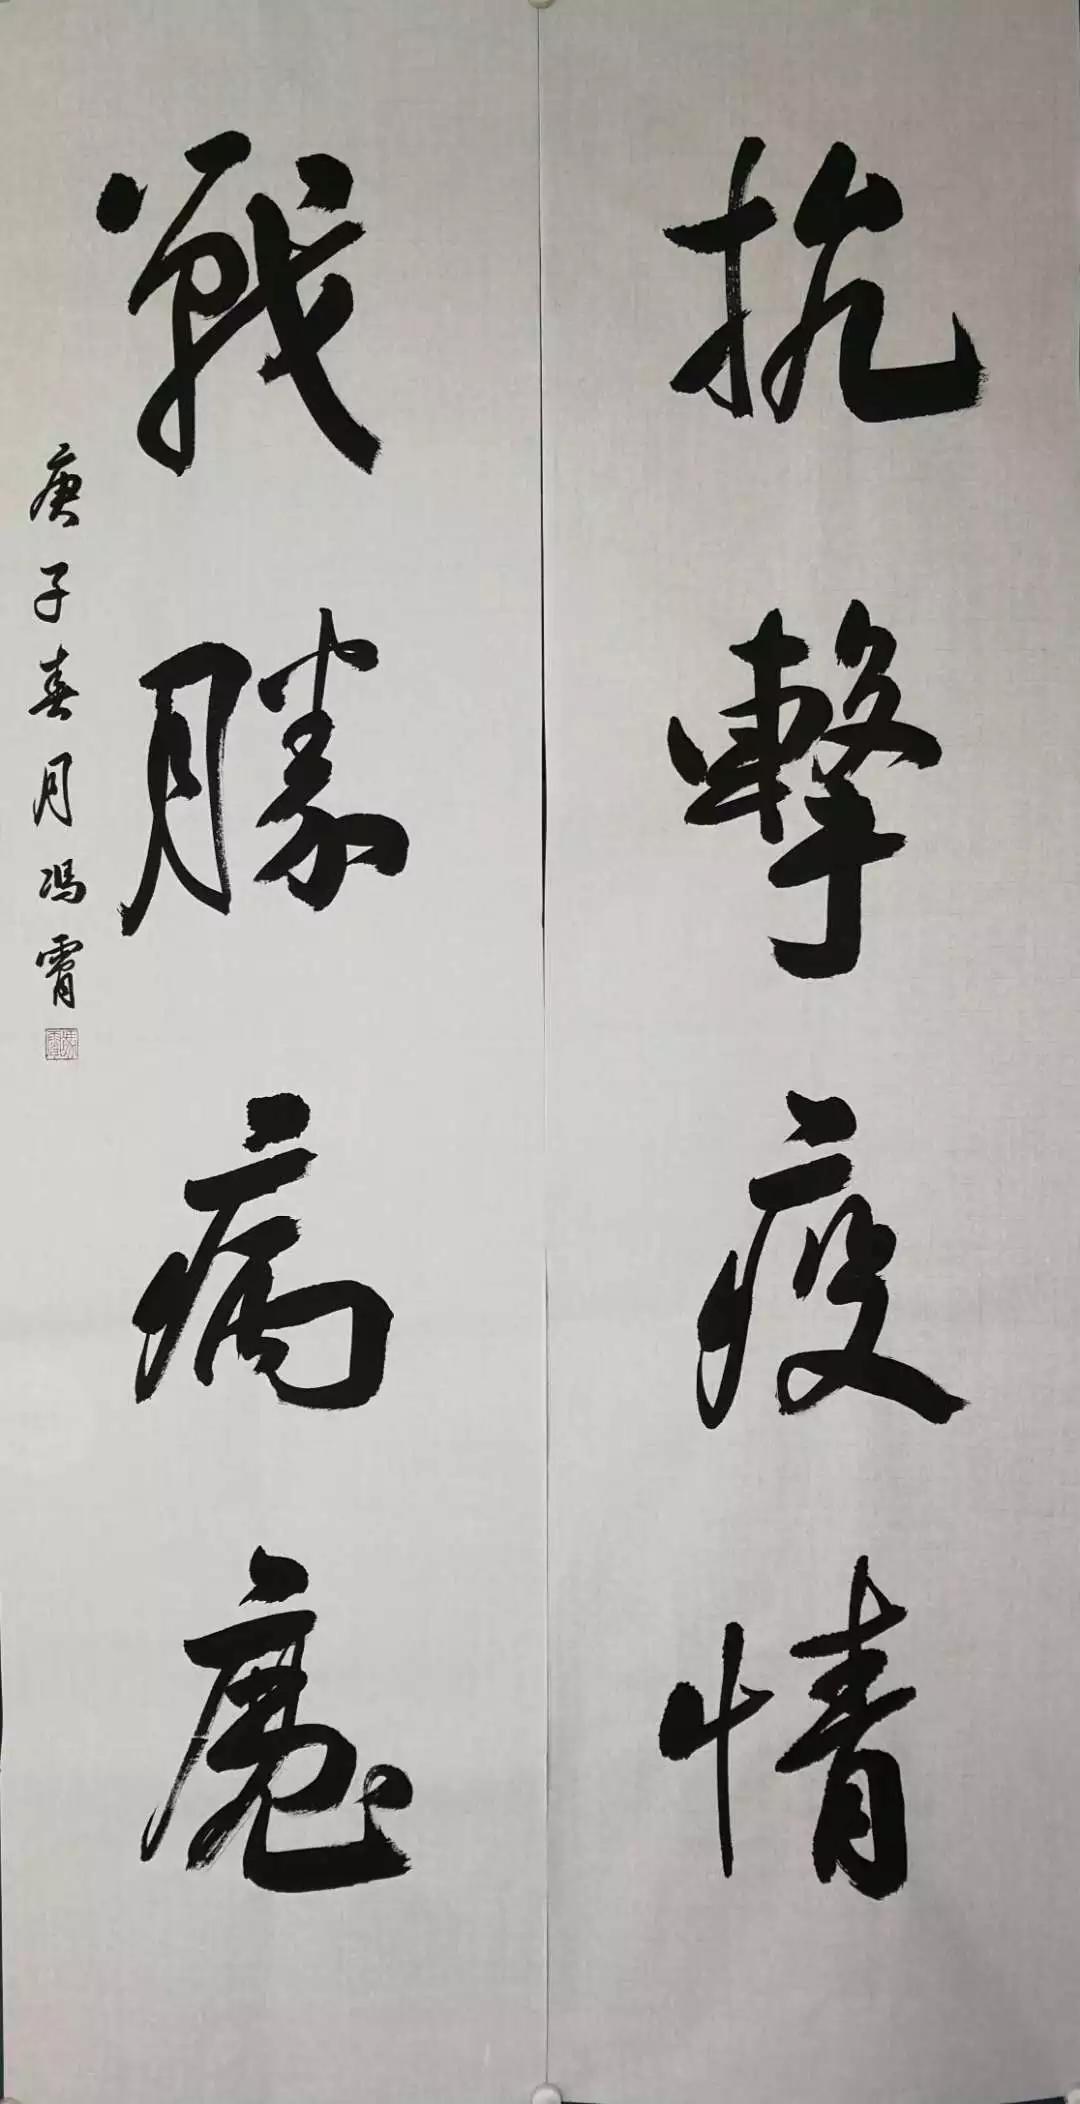 抗擊疫情
戰勝病魔
庚子春月馮霄